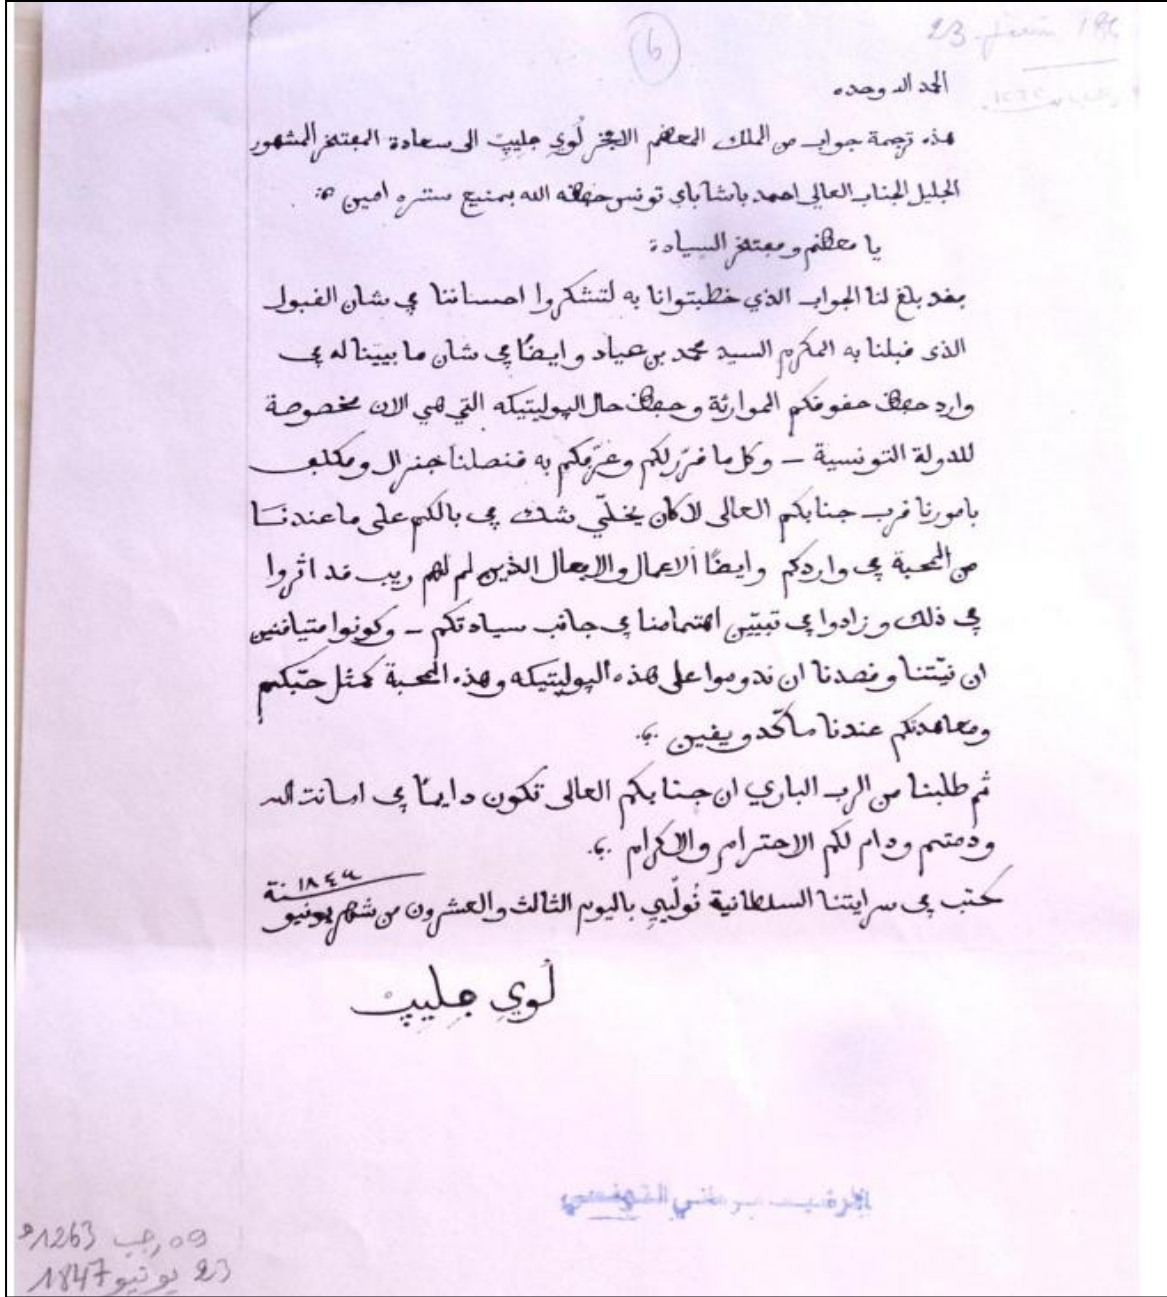 23
6
الحمد لله وحده
هذه ترجمة جواب من الملك المعضم الافخر لُوي فِليپ الى سعادة المفتخر المشهور
الجليل الجناب العالي احمد باشا باي تونس حفظه الله بمنيع ستره امين
يا معظم ومفتخر السيادة
فقد بلغ لنا الجواب الذي خطبتوانا به لتشكروا احساننا في شان القبول
الذى قبلنا به المكرم السيد محمد بن عياد وايضًا في شان ما بيّينا له في
وارد حفظ حقوقكم الموارثة وحفظ حال الپوليتيكه التي هي الان مخصوصة
للدولة التونسية – وكل ما قرّر لكم وعرّفكم به قنصلنا جنرال ومكلف
بامورنا قرب جنابكم العالى لا كان يخلّي شك في بالكم على ما عندنا
من المحبة في واردكم وايضًا الاعمال والافعال الذين لم لهم ريب قد اثروا
في ذلك وزادوا في تبيّين اهتمامنا في جانب سيادتكم – وكونوا متياقنين
ان نيّتنا وقصدنا ان ندوموا على هذه الپوليتيكه وهذه المحبة كمثل حبّكم
ومعاهدتكم عندنا ماكّد ويقين
ثم طلبنا من الرب الباري ان جنابكم العالى تكون دايمًا في امانت الله
ودمتم ودام لكم الاحترام والاكرام
كتب في سرايتنا السلطانية نُولّيي باليوم الثالث والعشرون من شهر يونيو
سنة ١٨٤٧
لُوي فِليپ
09 رجب 1263
23 يونيو 1847